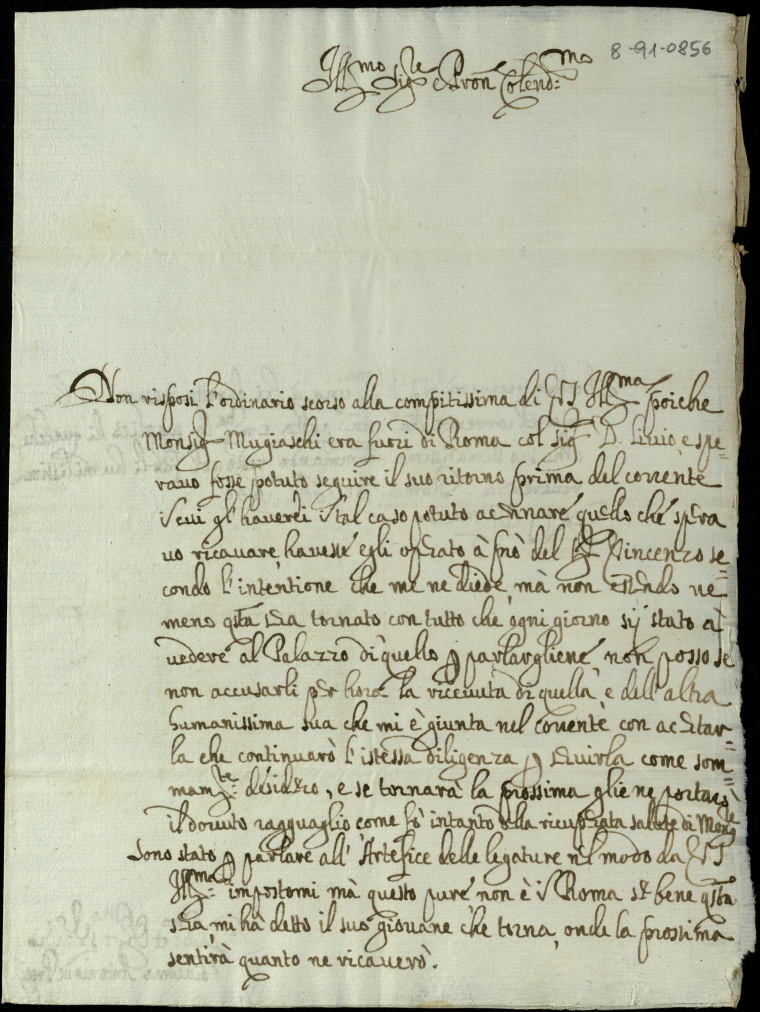 8-91-0856
Ill:mo Sig:re e Pron Colend:mo
Non risposi l'ordinario scorso alla compitissima di VS Ill:ma poiche
Monsig:r Mugiaschi era fuori di Roma col sig:r D. Livio e spe=
ravo fosse potuto seguire il suo ritorno prima del corrente
gl' haverei tal caso potuto accennare quello che spera
vo ricavare havesse egli operato à del Vincenzo se=
condo l'intentione che me ne diede, mà non essendo ne
meno sera tornato con tutto che ogni giorno sij stato à
vedere al Palazzo di quello p parlargliene non posso se
non accusarli per hora la ricevuta di quella e dell'altra
humanissima sua che mi è giunta nel corrente con accertar=
la che continuarò l'istessa diligenza p servirla come som=
mam:te desidero, e se tornarà la prossima gliene portarò
il dovuto ragguaglio come fò intanto della ricuperata salute di Mons:re
Sono stato p parlare all' Artefice delle legature nel modo da VS
Ill:ma impostomi mà questo pure non è Roma se bene
sera mi hà detto il suo giovane che torna, onde la prossima
sentirà quanto ne ricaverò.